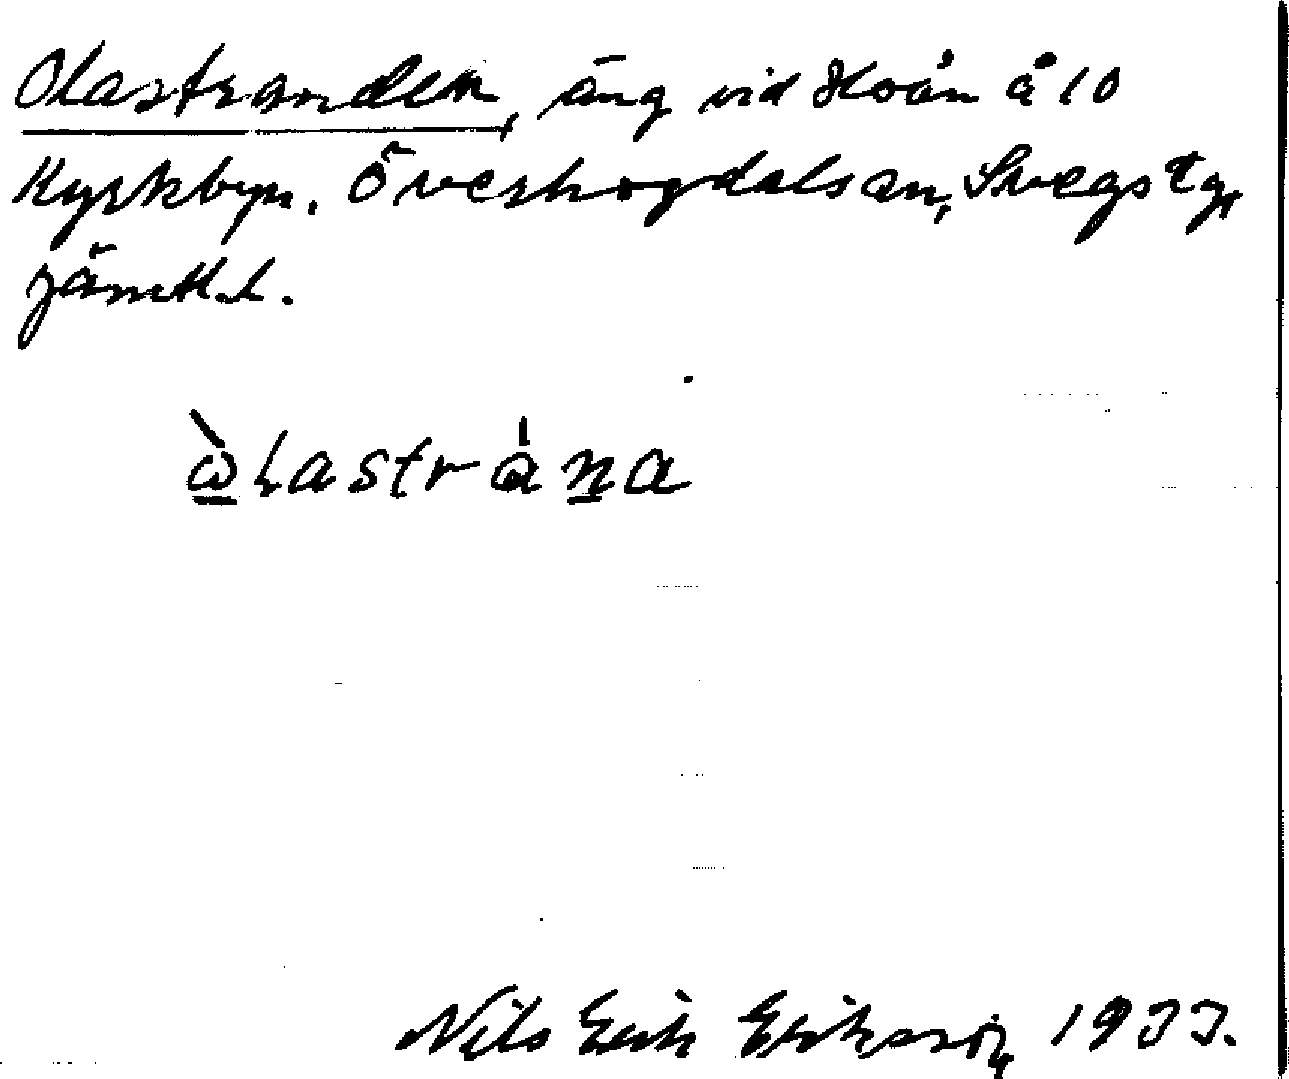 Olastranden, äng vid Hoån å 10
Kyrkbyn. Överhogdals sn, Svegs tg,
Jämtl.l.
Nils Erik Eriksson, 1933.